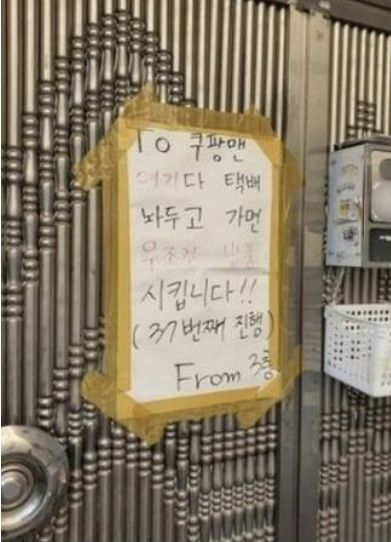 To 쿠팡맨
여기다 택배
놔두고 가면
무조건 반품
시킵니다!!
(37번째 진행)
From 3층